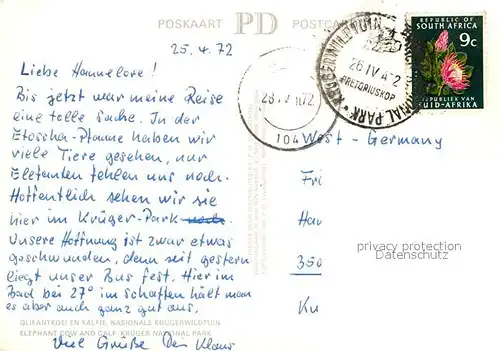 POSKAART PD POSTCARD
25.4.72
Liebe Hannelore!
Bis jetzt war meine Reise
eine tolle Sache. In der
Etoscha-Pfanne haben wir
viele Tiere gesehen, nur
Elefanten fehlen uns noch.
Hoffentlich sehen wir sie
hier im Krüger-Park
Unsere Hoffnung ist zwar etwas
geschwunden, denn seit gestern
liegt unser Bus fest. Hier im
Bad bei 27° im Schatten hält man
es aber auch ganz gut aus.
OLIFANTKOEI EN KALFIE, NASIONALE KRUGERWILDTUIN
ELEPHANT COW AND CALF, KRUGER NATIONAL PARK
Viel Grüße Dein Klaus
KRUGERWILDTUIN
26 IV 72
PRETORIUSKOP
NATIONAL PARK
104
REPUBLIC OF
SOUTH AFRICA
9c
REPUBLIEK VAN
SUID-AFRIKA
West - Germany
Frl
Han
350
privacy protection
Datenschutz